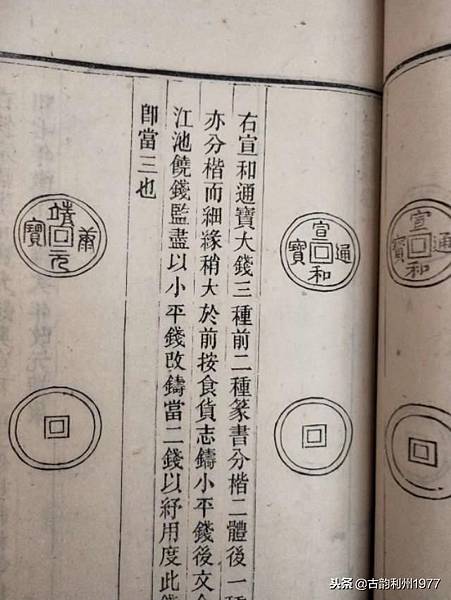 宣和通寶
宣和通寶
右宣和通寶大錢三種前二種篆書分楷二體後一種
亦分楷而細緣稍大於前按食貨志鑄小平錢後文
江池饒錢監盡以小平錢改鑄當二錢以紓用度此
卽當三也
靖康元寶
头条 @古韵利州1977